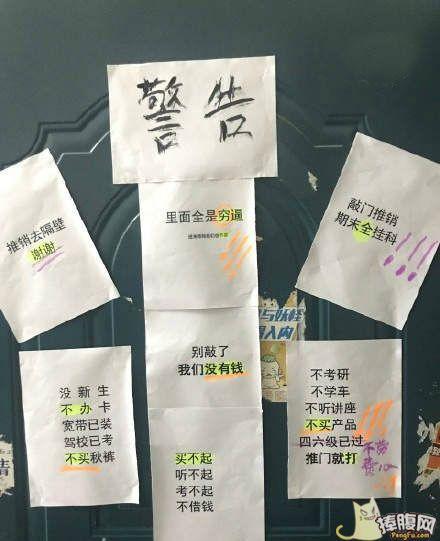 警告
推销去隔壁
谢谢
里面全是穷逼
敲门推销
期末全挂科
别敲了
我们没有钱
没新生
不办卡
宽带已装
驾校已考
不买秋裤
买不起
听不起
考不起
不借钱
不考研
不学车
不听讲座
不买产品
四六级已过
推门就打
不劳
费心
捧腹网
PengFu.com